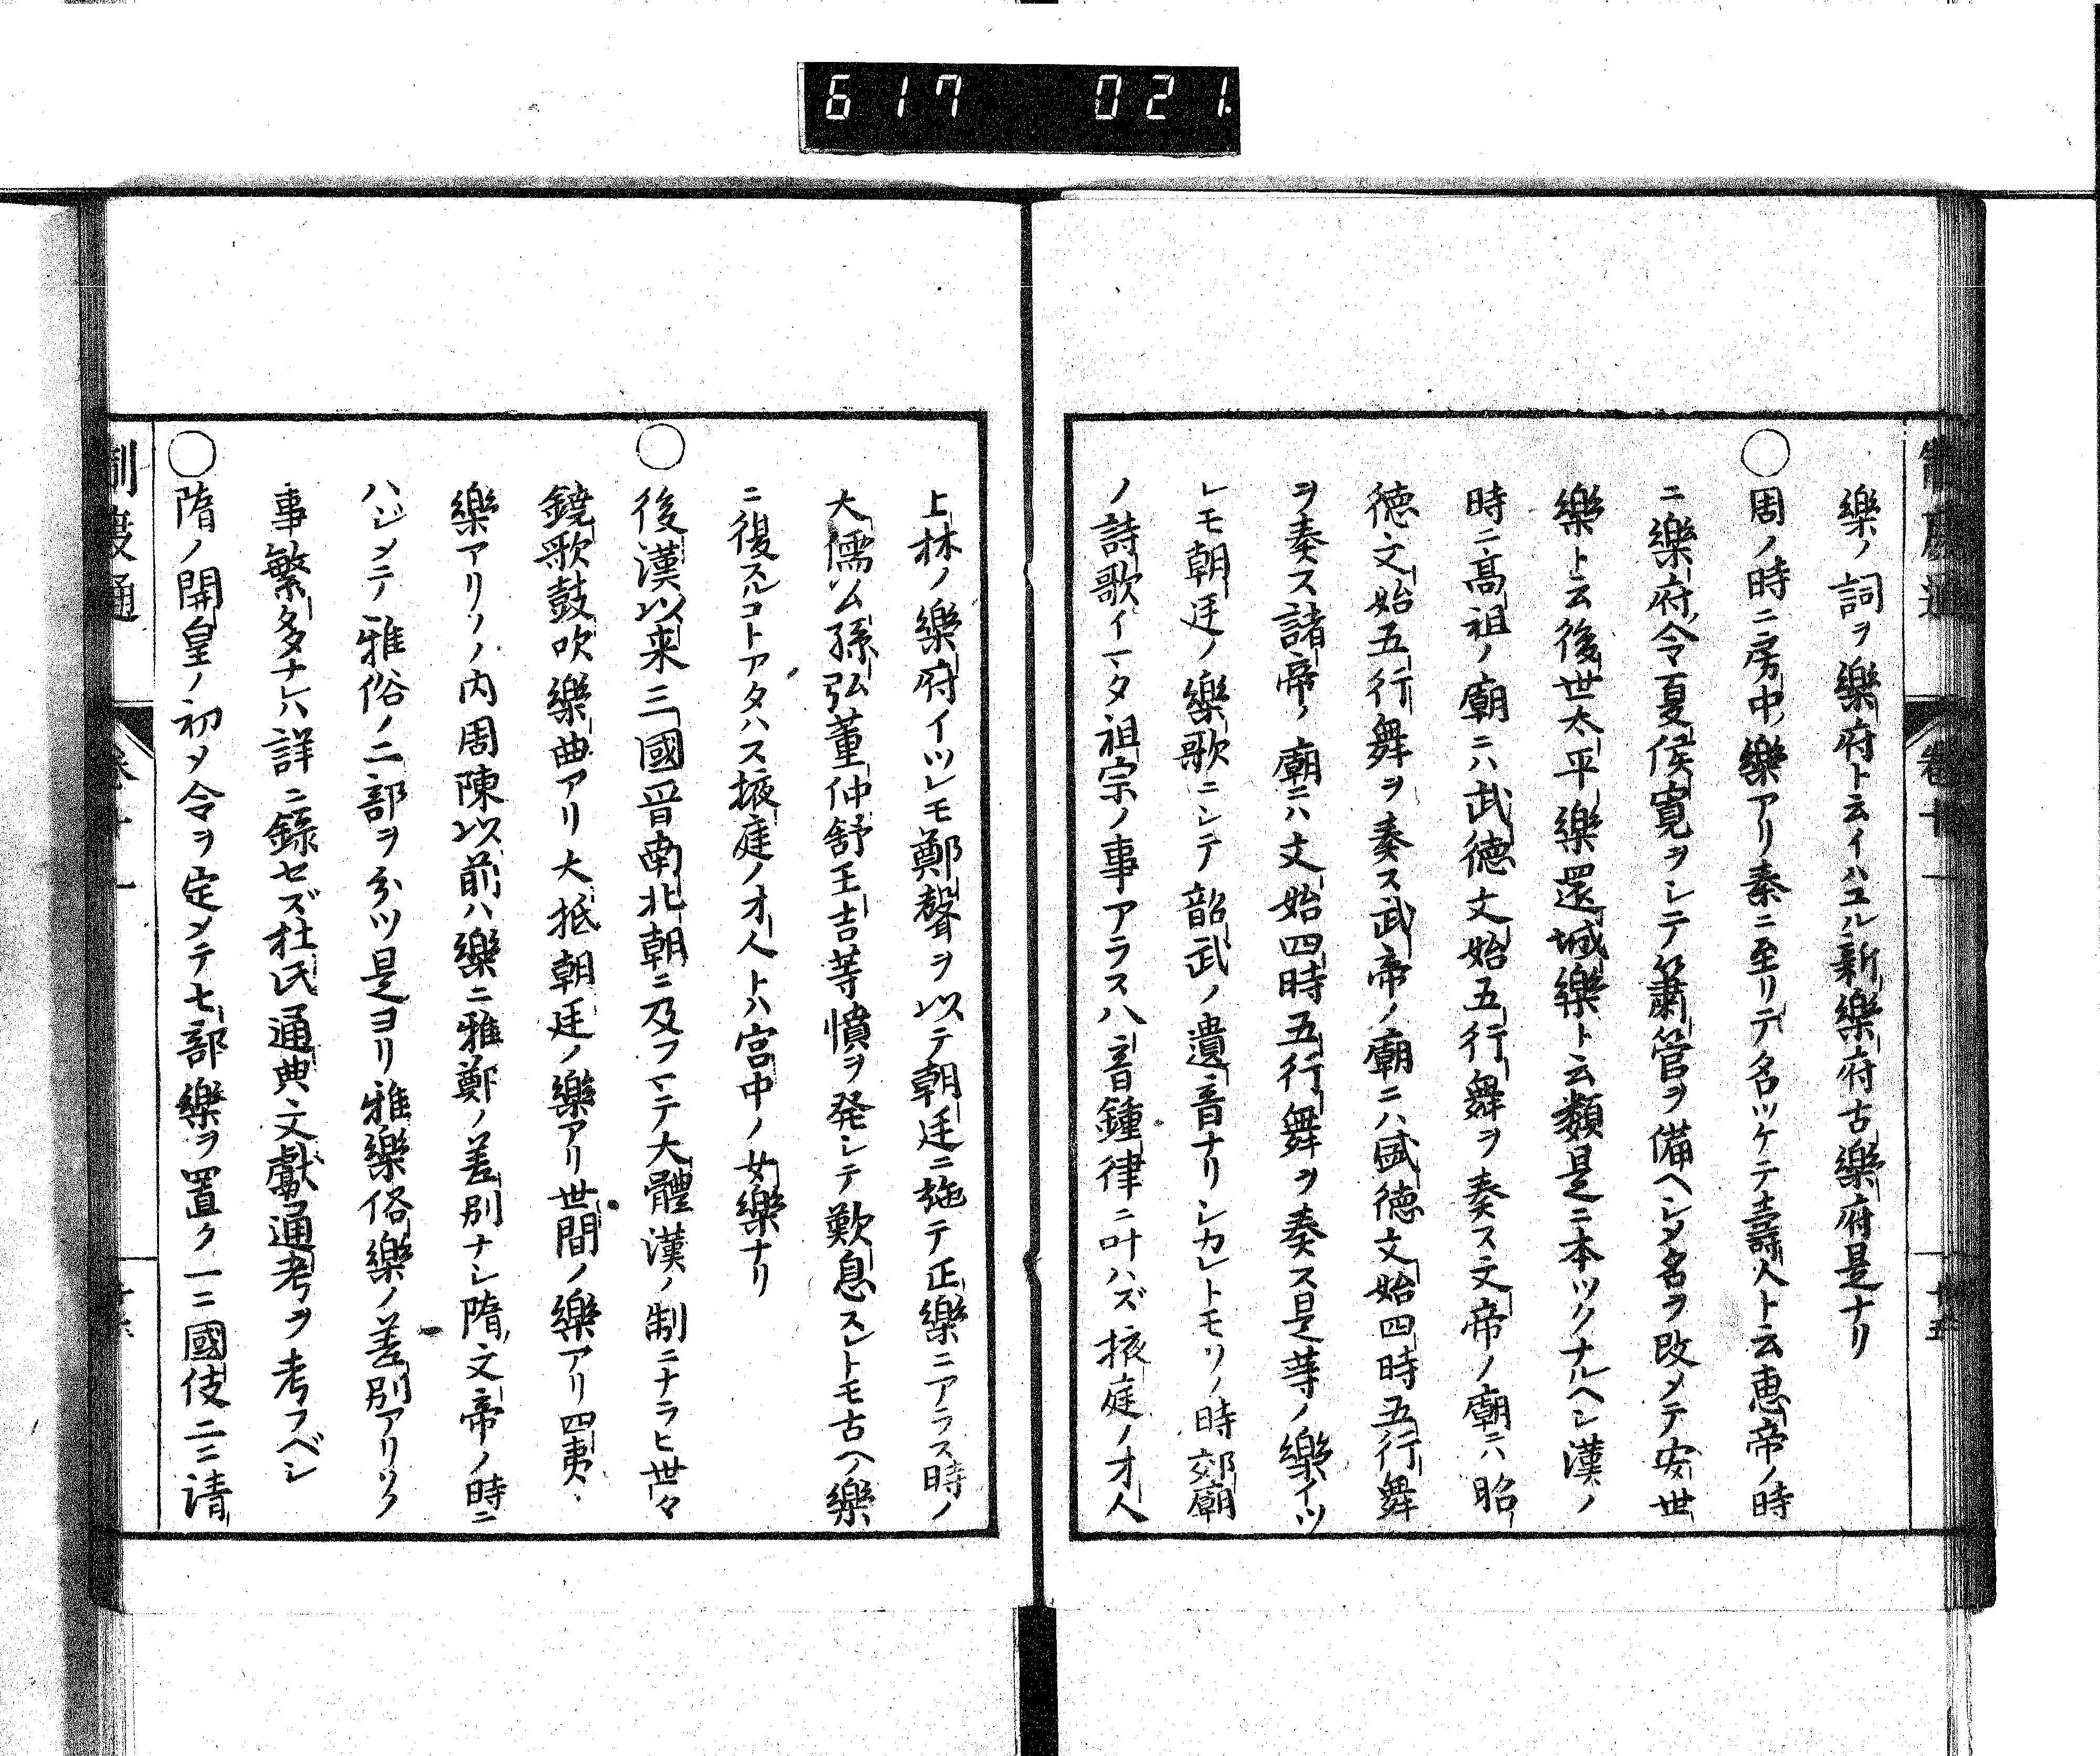 617 021
制度通
卷十一
十五
樂ノ詞ヲ樂府ト云イハユル新樂府古樂府是ナリ
○周ノ時ニ房中樂アリ秦ニ至リテ名ツケテ壽人ト云恵帝ノ時
ニ樂府令夏侯寛ヲシテ簫管ヲ備ヘシメ名ヲ改メテ安世
樂ト云後世太平樂還城樂ト云類是ニ本ツクナルヘシ漢ノ
時ニ髙祖ノ廟ニハ武徳文始五行舞ヲ奏ス文帝ノ廟ニハ昭
徳文始五行舞ヲ奏ス武帝ノ廟ニハ盛徳文始四時五行舞
ヲ奏ス諸帝ノ廟ニハ文始四時五行舞ヲ奏ス是等ノ樂イツ
レモ朝廷ノ樂歌ニシテ韶武ノ遺音ナリシカレトモソノ時郊廟
ノ詩歌イマタ祖宗ノ事アラス八音鍾律ニ叶ハズ掖庭ノオ人
上林ノ樂府イツレモ鄭聲ヲ以テ朝廷ニ施テ正樂ニアラス時ノ
大儒公孫弘董仲舒王吉等憤ヲ発シテ歎息スレトモ古ヘノ樂
ニ復スルコトアタハス掖庭ノオ人トハ宮中ノ女樂ナリ
○後漢以来三國晋南北朝ニ及フマテ大體漢ノ制ニナラヒ世々
鐃歌鼓吹樂曲アリ大抵朝廷ノ樂アリ世間ノ樂アリ四夷ノ
樂アリソノ内周陳以前ハ樂ニ雅鄭ノ差別ナシ隋文帝ノ時ニ
ハジメテ雅俗ノ二部ヲ分ツ是ヨリ雅樂俗樂ノ差別アリソノ
事繁多ナレハ詳ニ錄セズ杜氏通典文獻通考ヲ考フベシ
○隋ノ開皇ノ初メ令ヲ定メテ七部樂ヲ置ク一ニ國伎二ニ清
制度通
卷十一